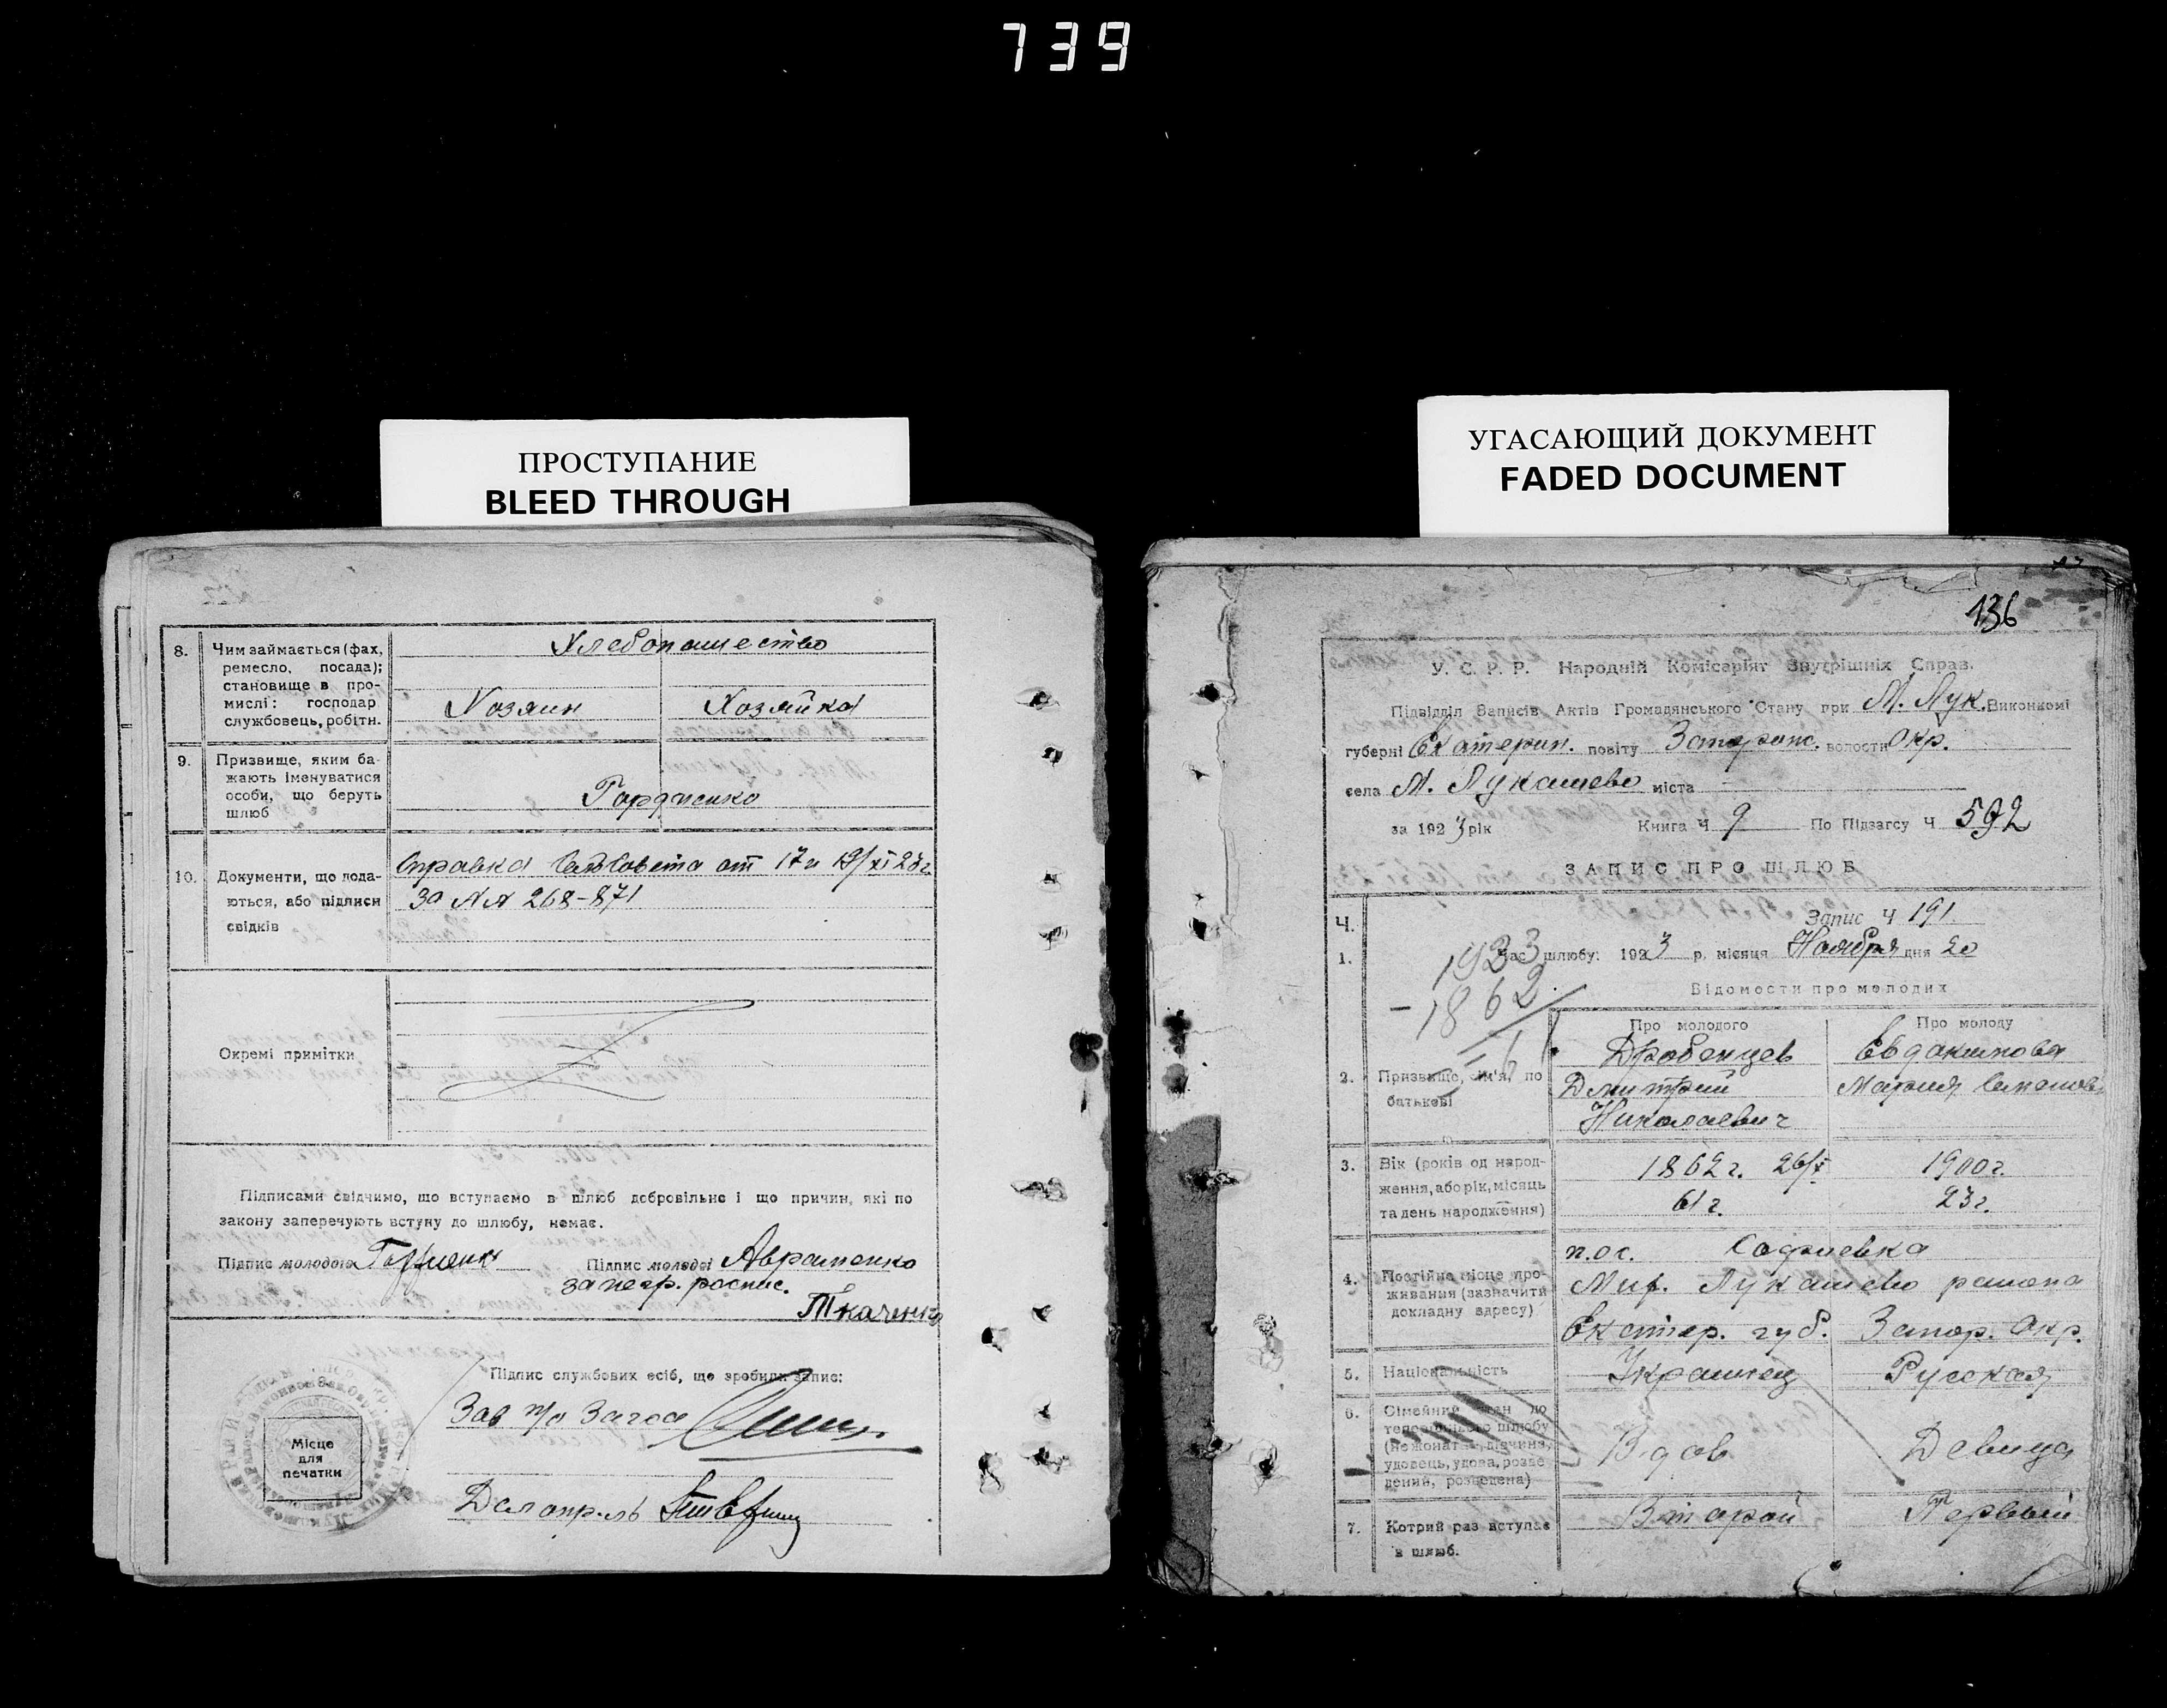 739
ПРОСТУПАНИЕ
BLEED THROUGH
8. Чим займається (фах, ремесло, посада); становище в промислі: господар службовець, робітн.
Хлебопашество
Хозяин Хозяйка
9. Призвище, яким бажають іменуватися особи, що беруть шлюб
Гордиенко
10. Документи, що додаються, або підписи свідків
Справка СельСовета от 17 и 19/XI 23г.
За NN 268-871
Окремі примітки
Підписами свідчимо, що вступаємо в шлюб добровільно і що причин, які по
закону заперечують вступу до шлюбу, немає.
Підпис молодого Підпис молодої Авраменко
за негр. роспис.
Ткаченко
Підпис службових осіб, що зробили запис:
Зав п/о Загса
Місце
для
печатки
УГАСАЮЩИЙ ДОКУМЕНТ
FADED DOCUMENT
136
У. С. Р. Р. Народній Комісаріят Внутрішніх Справ.
Підвідділ Записів Актів Громадянського Стану при М. Лук. Виконкомі
губерні Екатерин. повіту Запорож. волости Окр.
села М. Лукашево міста
за 1923 рік Книга Ч 9 По Підзагсу Ч 592
ЗАПИС ПРО ШЛЮБ
Ч. Запис Ч 191
1. Час шлюбу: 1923 р. місяця Ноября дня 20
1933
- 1862
Відомости про молодих
Про молодого Про молоду
2. Призвище, ім'я, по батькові
Дробенцев Евдокимова
Дмитрий Мария
Николаевич
3. Вік (років од народження, або рік, місяць та день народження)
1862г. 26/X 1900г.
61г. 23г.
4. Постійне місце проживання (зазначити докладну адресу)
пос. Софиевка
Мих. Лукашево района
Екатер. губ. Запор. Окр.
5. Національність Украинец Русская
6. Сімейний стан до теперішнього шлюбу (нежонатий, дівчина, удовець, удова, розведений, розведена)
Вдов Девица
7. Котрий раз вступає в шлюб.
Второй Первый